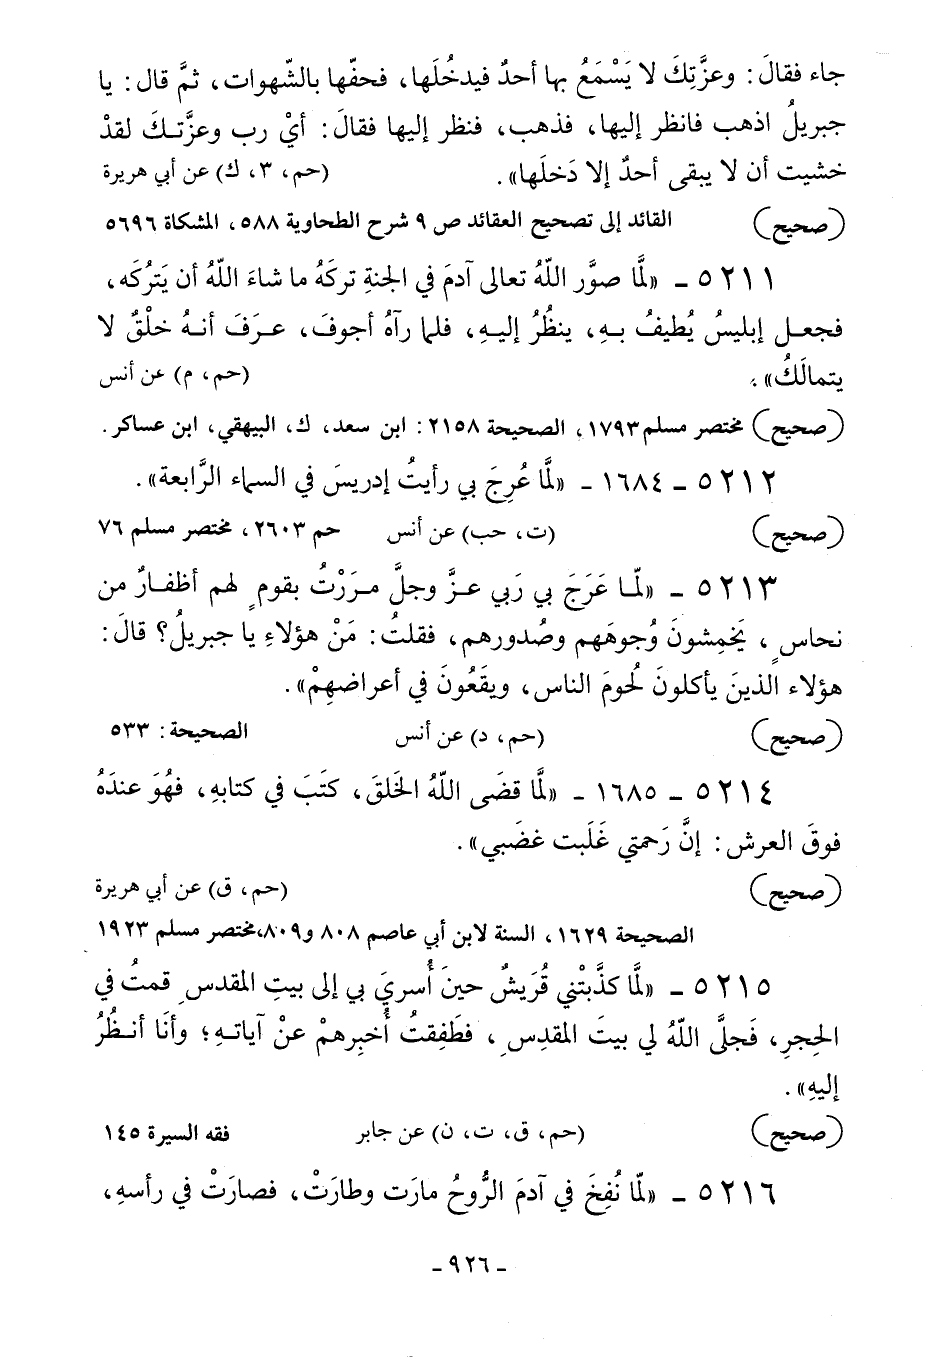 جاء فقالَ: وعزَّتِكَ لا يَسْمَعُ بها أحدٌ فيدخُلَها، فحفّها بالشّهوات، ثمَّ قال: يا
جبريلُ اذهب فانظر إليها، فذهب، فنظر إليها فقالَ: أيْ رب وعزَّتـكَ لقدْ
خشيت أن لا يبقى أحدٌ إلا دَخلَها». (حم، ٣، ك) عن أبي هريرة
(صحيح) القائد إلى تصحيح العقائد ص ٩ شرح الطحاوية ٥٨٨، المشكاة ٥٦٩٦
٥٢١١ ـ «لمَّا صوَّر اللّهُ تعالى آدمَ في الجنةِ تركَهُ ما شاءَ اللّهُ أن يَتركَه،
فجعـل إبليسُ يُطيفُ بـهِ، ينظُرُ إليـهِ، فلما رآهُ أجوفَ، عـرَفَ أنـهُ خلْقٌ لا
يتمالَكُ». (حم، م) عن أنس
(صحيح) مختصر مسلم ١٧٩٣، الصحيحة ٢١٥٨: ابن سعد، ك، البيهقي، ابن عساكر.
٥٢١٢ ـ ١٦٨٤ ـ «لمَّا عُرِجَ بي رأيتُ إدريسَ في السماء الرَّابعة».
(صحيح) (ت، حب) عن أنس حم ٢٦٠٣، مختصر مسلم ٧٦
٥٢١٣ ـ «لمّـا عَرَجَ بي رَبي عـزَّ وجلَّ مـرَرْتُ بقومٍ لهم أظفـارٌ من
نحاسٍ، يَخمِشونَ وُجوهَهم وصُدورهم، فقلتُ: مَنْ هؤلاءِ يا جبريلُ؟ قالَ:
هؤلاء الذينَ يأكلونَ لحُومَ الناس، ويقَعُونَ في أعراضهِمْ».
(صحيح) (حم، د) عن أنس الصحيحة: ٥٣٣
٥٢١٤ ـ ١٦٨٥ ـ «لمَّا قضَى اللّهُ الخَلقَ، كتَبَ في كتابهِ، فهُوَ عندَهُ
فوقَ العرش: إنَّ رَحمتي غَلَبت غضَبي».
(صحيح) (حم، ق) عن أبي هريرة
الصحيحة ١٦٢٩، السنة لابن أبي عاصم ٨٠٨ و٨٠٩، مختصر مسلم ١٩٢٣
٥٢١٥ ـ «لمَّا كذَّبتْني قُرَيشٌ حينَ أُسريَ بي إلى بيتِ المقدسِ قمتُ في
الحِجرِ، فَجلَّى اللّهُ لي بيتَ المقدِسِ، فطَفِقتُ أُخبِرهمْ عنْ آياتـهِ؛ وأنَا أنـظُرُ
إليهِ».
(صحيح) (حم، ق، ت، ن) عن جابر فقه السيرة ١٤٥
٥٢١٦ ـ «لمّا نُفِخَ في آدمَ الرُّوحُ مارَت وطارَتْ، فصارَتْ في رأسهِ،
ـ ٩٢٦ ـ